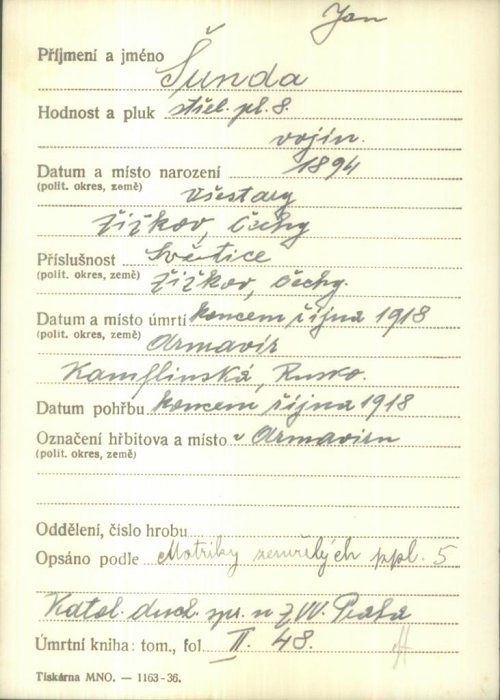 Jan
Příjmení a jméno Šunda
Hodnost a pluk střel. pl. 8.
vojín.
Datum a místo narození 1894
(polit. okres, země) Všestary
Žižkov, Čechy
Příslušnost Světice
(polit. okres, země) Žižkov, Čechy.
Datum a místo úmrtí koncem října 1918
(polit. okres, země) Armavir
Rusko.
Datum pohřbu koncem října 1918
Označení hřbitova a místo v Armaviru
(polit. okres, země)
Oddělení, číslo hrobu
Opsáno podle Matriky zemřelých ppl. 5
Katol. duch. spr. u ZVV. Praha
Úmrtní kniha: tom., fol. II. 48.
Tiskárna MNO. — 1163-36.